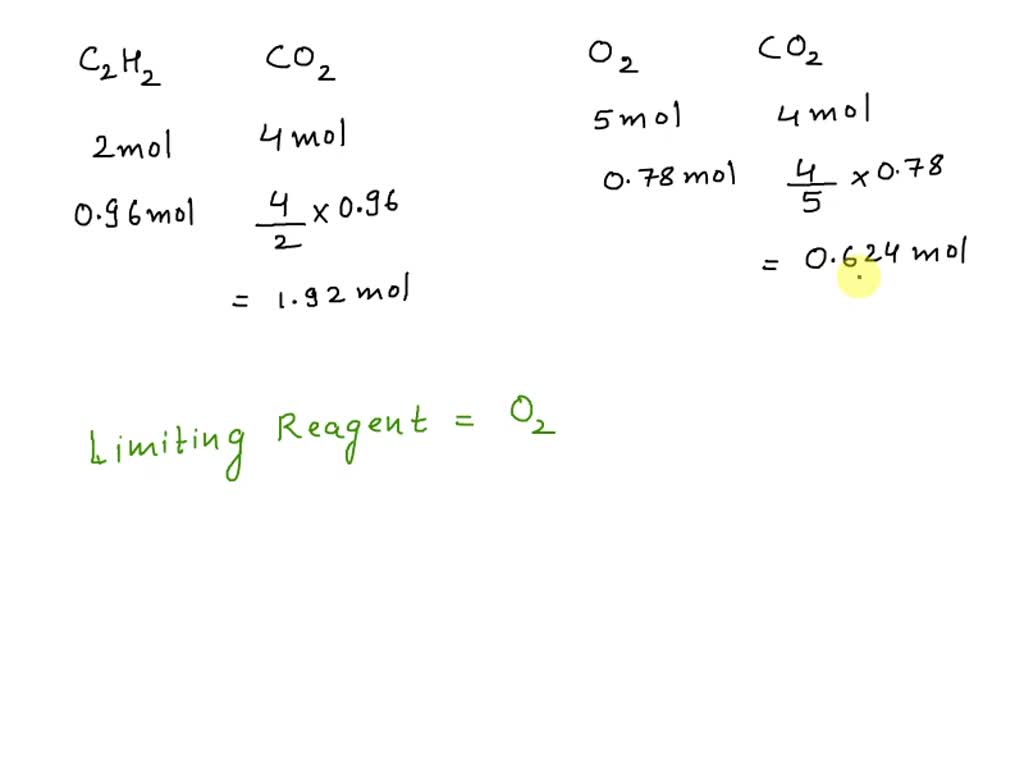 C₂H₂ CO₂
2mol 4 mol
0.96 mol 4/2 x 0.96
= 1.92 mol
O₂ CO₂
5 mol 4 mol
0.78 mol 4/5 x 0.78
= 0.624 mol
Limiting Reagent = O₂